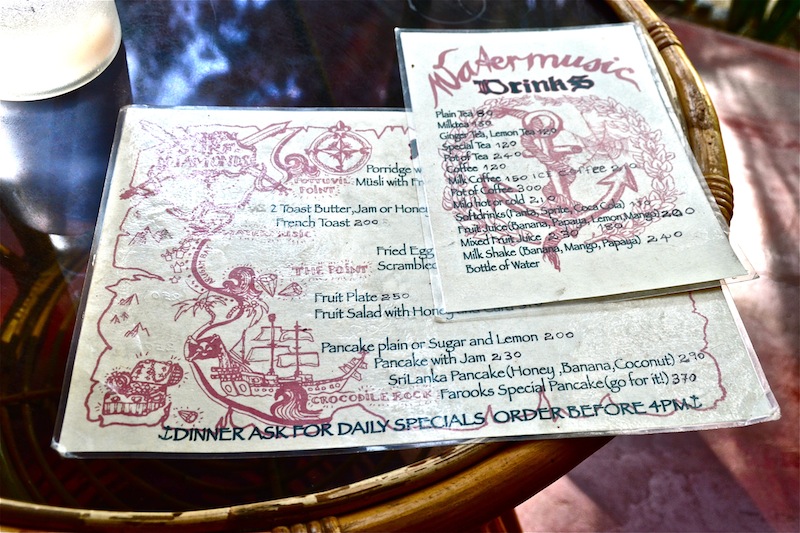 Watermusic
Drinks
Plain Tea 80
Milktea 150
Ginger Tea, Lemon Tea 120
Special Tea 120
Pot of Tea 240
Coffee 120
Milk Coffee 150 ICE Coffee 240
Pot of Coffee 300
Milo hot or cold 210
Softdrinks (Fanta, Sprite, Coca Cola)
Fruit Juice (Banana, Papaya, Lemon, Mango) 200
Mixed Fruit Juice 230 180
Milk Shake (Banana, Mango, Papaya) 240
Bottle of Water
DIAMONDS
POTTUVIL
POINT
Porridge w
Müsli with Fr
2 Toast Butter, Jam or Hone
French Toast 200
WATER MUSIC
Fried Egg
THE POINT
Scrambled
Fruit Plate 250
Fruit Salad with Honey
Pancake plain or Sugar and Lemon 200
Pancake with Jam 230
SriLanka Pancake (Honey ,Banana,Coconut) 290
CROCODILE ROCK
Farooks Special Pancake (go for it!) 370
DINNER ASK FOR DAILY SPECIALS / ORDER BEFORE 4PM